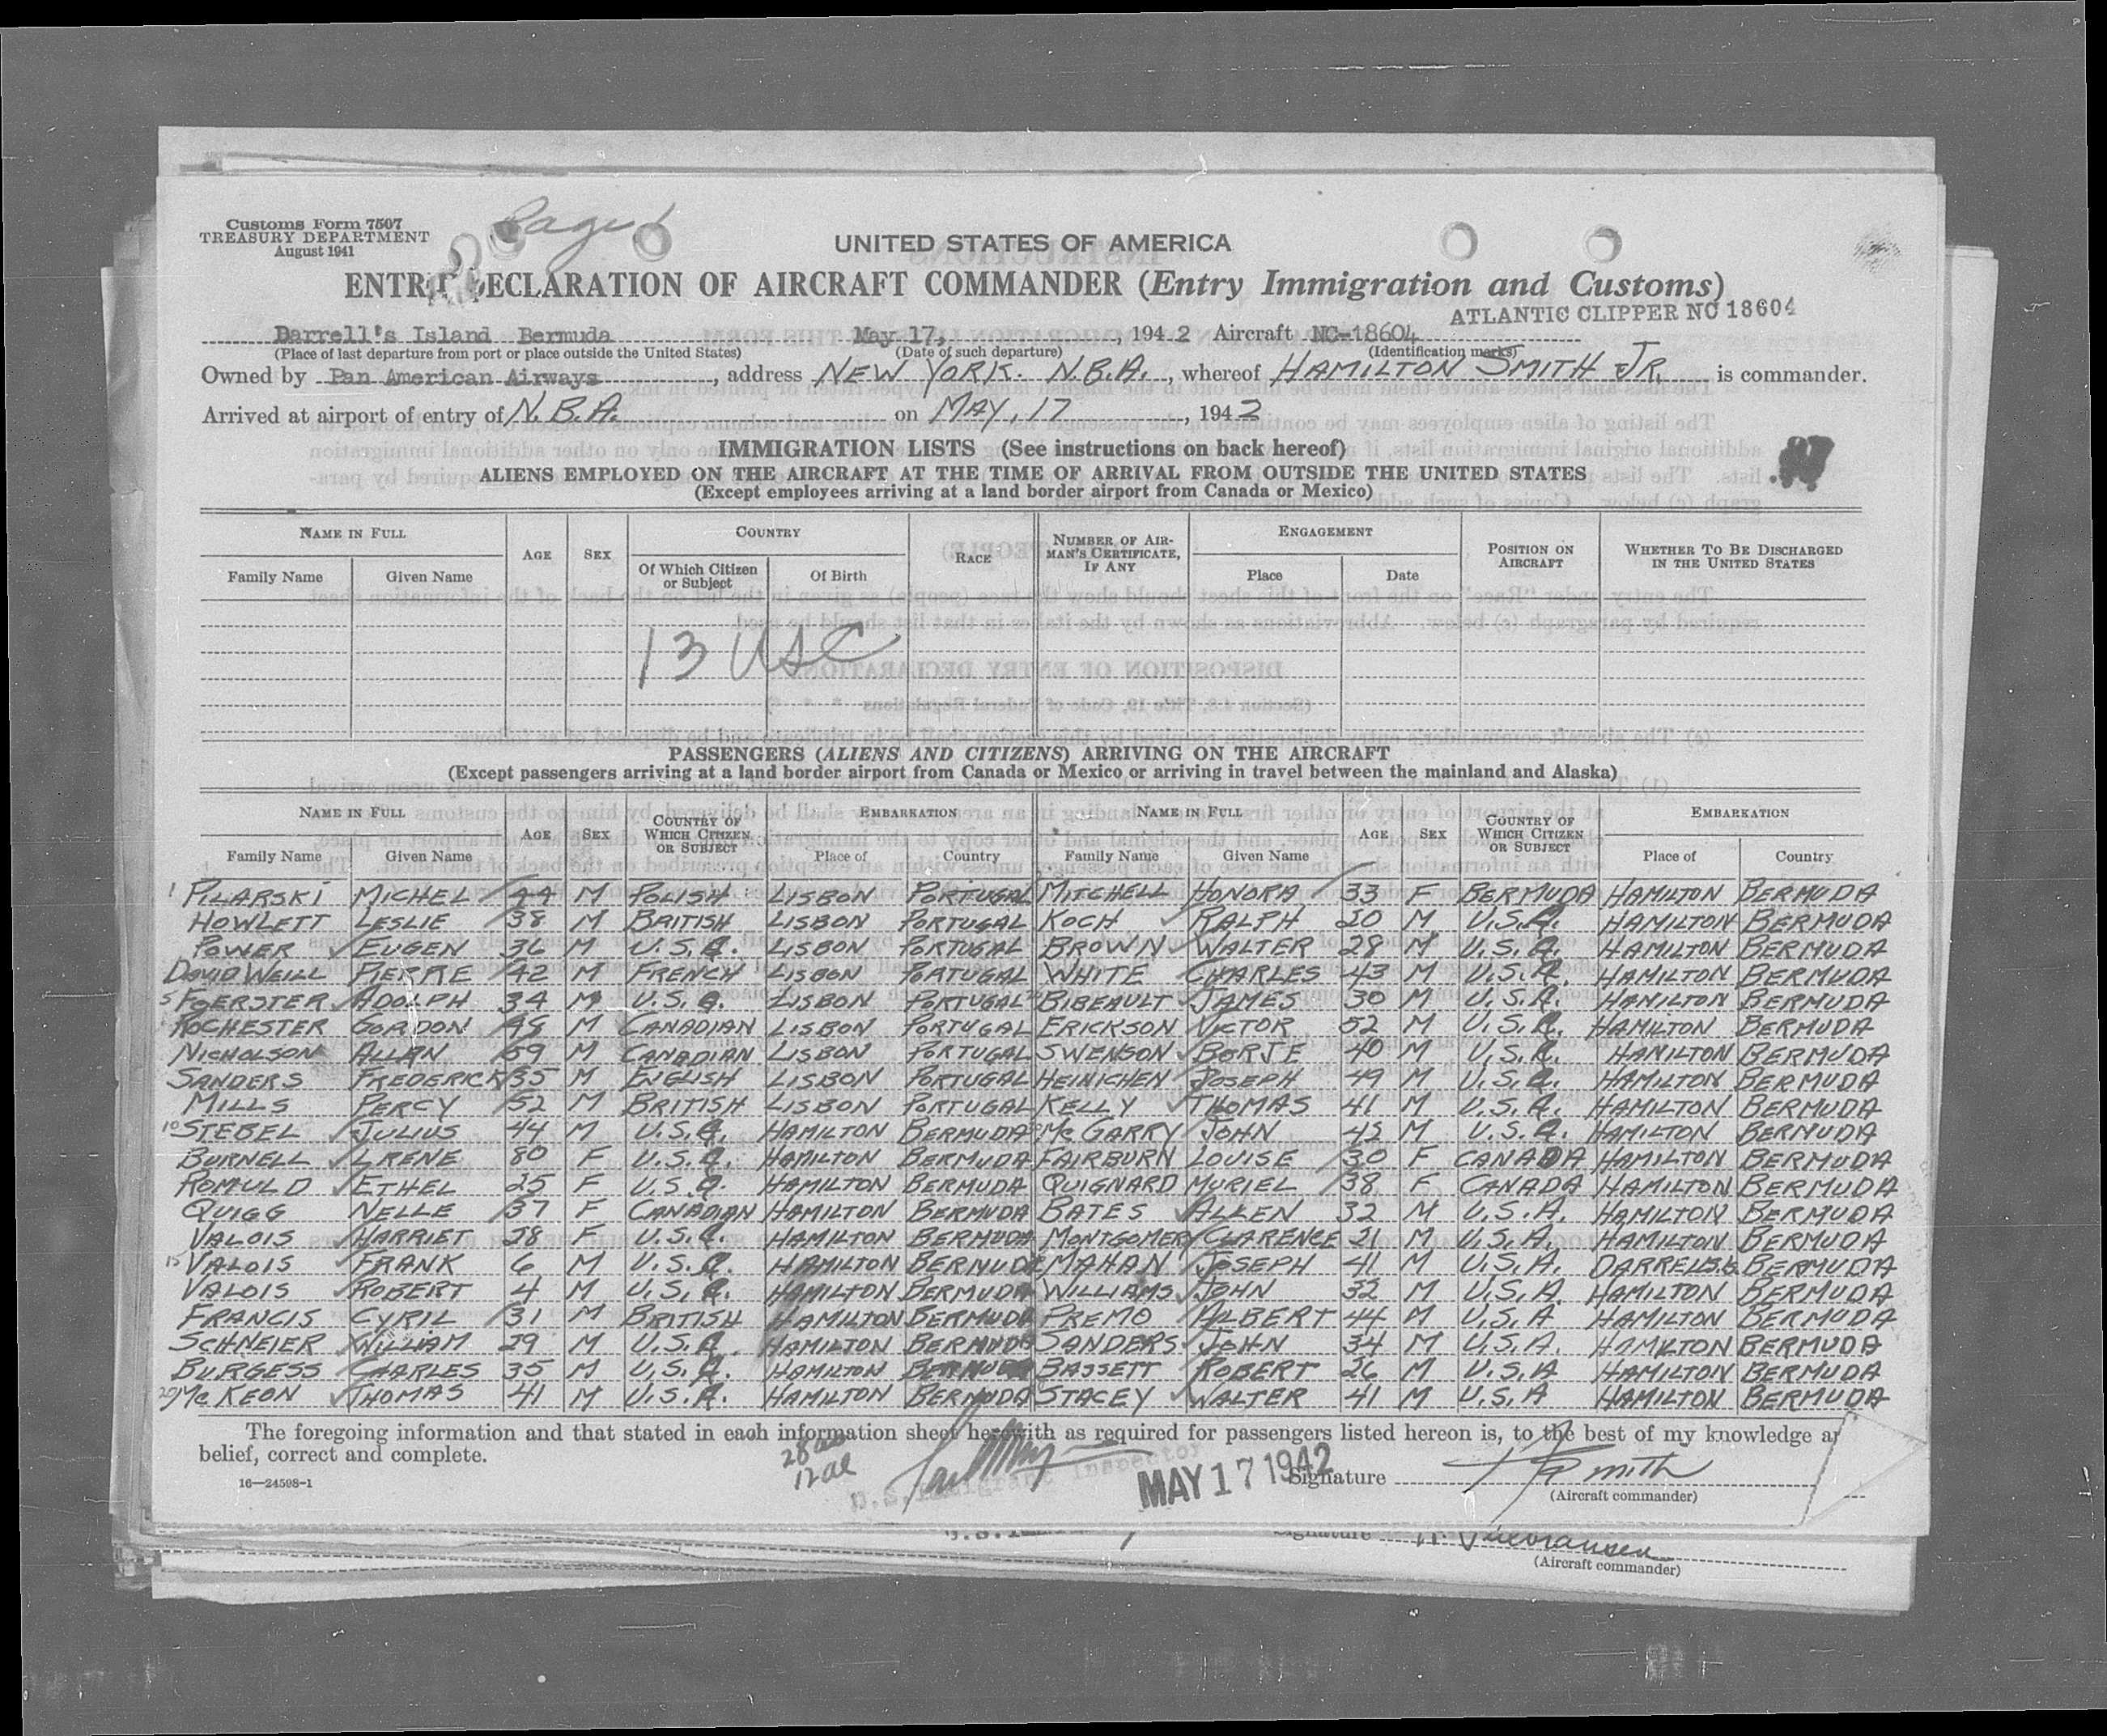 Customs Form 7507
TREASURY DEPARTMENT
August 1941
Page 1
UNITED STATES OF AMERICA
ENTRY DECLARATION OF AIRCRAFT COMMANDER (Entry Immigration and Customs)
ATLANTIC CLIPPER NC 18604
Darrell's Island Bermuda May 17, , 194 2 Aircraft NC-18604
(Place of last departure from port or place outside the United States) (Date of such departure) (Identification marks)
Owned by Pan American Airways , address NEW YORK. N.B.A. , whereof HAMILTON SMITH JR. is commander.
Arrived at airport of entry of N.B.A. on MAY, 17 , 194 2
IMMIGRATION LISTS (See instructions on back hereof)
ALIENS EMPLOYED ON THE AIRCRAFT AT THE TIME OF ARRIVAL FROM OUTSIDE THE UNITED STATES
(Except employees arriving at a land border airport from Canada or Mexico)
NAME IN FULL AGE SEX COUNTRY RACE NUMBER OF AIRMAN'S CERTIFICATE, IF ANY ENGAGEMENT POSITION ON AIRCRAFT WHETHER TO BE DISCHARGED IN THE UNITED STATES
Family Name Given Name Of Which Citizen or Subject Of Birth Place Date
13 USC
PASSENGERS (ALIENS AND CITIZENS) ARRIVING ON THE AIRCRAFT
(Except passengers arriving at a land border airport from Canada or Mexico or arriving in travel between the mainland and Alaska)
NAME IN FULL AGE SEX COUNTRY OF WHICH CITIZEN OR SUBJECT EMBARKATION NAME IN FULL AGE SEX COUNTRY OF WHICH CITIZEN OR SUBJECT EMBARKATION
Family Name Given Name Place of Country Family Name Given Name Place of Country
1 PILARSKI MICHEL 44 M POLISH LISBON PORTUGAL MITCHELL HONORA 33 F BERMUDA HAMILTON BERMUDA
HOWLETT LESLIE 38 M BRITISH LISBON PORTUGAL KOCH RALPH 20 M U.S.A. HAMILTON BERMUDA
POWER EUGEN 36 M U.S.A. LISBON PORTUGAL BROWN WALTER 28 M U.S.A. HAMILTON BERMUDA
DAVID WEILL PIERRE 42 M FRENCH LISBON PORTUGAL WHITE CHARLES 43 M U.S.A. HAMILTON BERMUDA
5 FOERSTER ADOLPH 34 M U.S.A. LISBON PORTUGAL BIBEAULT JAMES 30 M U.S.A. HAMILTON BERMUDA
ROCHESTER GORDON 45 M CANADIAN LISBON PORTUGAL ERICKSON VICTOR 52 M U.S.A. HAMILTON BERMUDA
NICHOLSON ALLAN 59 M CANADIAN LISBON PORTUGAL SWENSON BORJE 40 M U.S.A. HAMILTON BERMUDA
SANDERS FREDERICK 35 M ENGLISH LISBON PORTUGAL HEINICHEN JOSEPH 49 M U.S.A. HAMILTON BERMUDA
MILLS PERCY 52 M BRITISH LISBON PORTUGAL KELLY THOMAS 41 M U.S.A. HAMILTON BERMUDA
10 STEBEL JULIUS 44 M U.S.A. HAMILTON BERMUDA MC GARRY JOHN 45 M U.S.A. HAMILTON BERMUDA
BURNELL IRENE 80 F U.S.A. HAMILTON BERMUDA FAIRBURN LOUISE 30 F CANADA HAMILTON BERMUDA
ROMULD ETHEL 25 F U.S.A. HAMILTON BERMUDA QUIGNARD MURIEL 38 F CANADA HAMILTON BERMUDA
QUIGG NELLE 37 F CANADIAN HAMILTON BERMUDA BATES ALLEN 32 M U.S.A. HAMILTON BERMUDA
VALOIS HARRIET 28 F U.S.A. HAMILTON BERMUDA MONTGOMERY CLARENCE 21 M U.S.A. HAMILTON BERMUDA
15 VALOIS FRANK 6 M U.S.A. HAMILTON BERMUDA MAHAN JOSEPH 41 M U.S.A. DARRELLS BERMUDA
VALOIS ROBERT 4 M U.S.A. HAMILTON BERMUDA WILLIAMS JOHN 32 M U.S.A. HAMILTON BERMUDA
FRANCIS CYRIL 31 M BRITISH HAMILTON BERMUDA PREMO ALBERT 44 M U.S.A HAMILTON BERMUDA
SCHNEIER WILLIAM 29 M U.S.A. HAMILTON BERMUDA SANDERS JOHN 34 M U.S.A. HAMILTON BERMUDA
BURGESS CHARLES 35 M U.S.A. HAMILTON BERMUDA BASSETT ROBERT 26 M U.S.A HAMILTON BERMUDA
20 Mc KEON THOMAS 41 M U.S.A. HAMILTON BERMUDA STACEY WALTER 41 M U.S.A HAMILTON BERMUDA
The foregoing information and that stated in each information sheet herewith as required for passengers listed hereon is, to the best of my knowledge
belief, correct and complete.
U.S. Immigrant Inspector
MAY 17 1942
Signature H Smith
(Aircraft commander)
16—24598-1
Signature
(Aircraft commander)